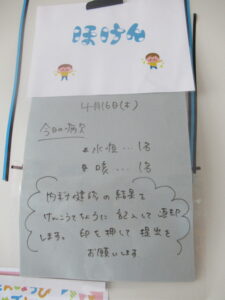 4月16日(木)
今日の病欠
水痘…1名
咳…1名
内科健診の結果を
けんこうてちょうに記入して返却
します。印を押して提出を
お願いします